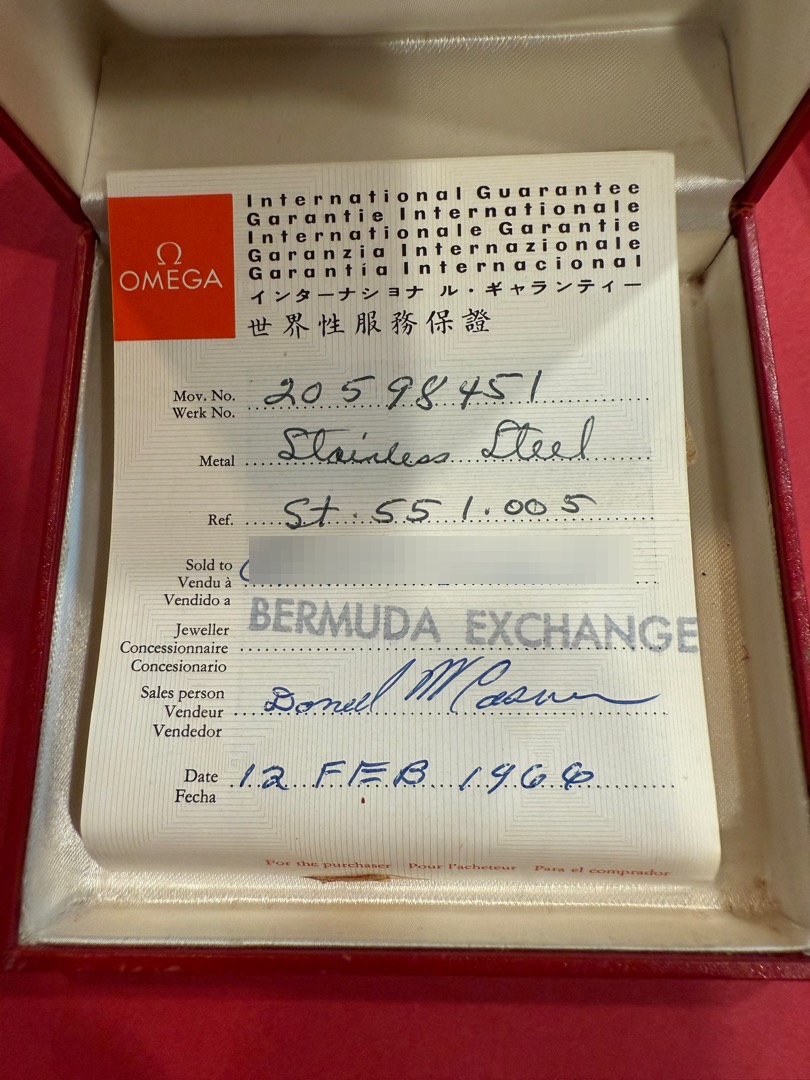 Ω
OMEGA
International Guarantee
Garantie Internationale
Internationale Garantie
Garanzia Internazionale
Garantía Internacional
インターナショナル・ギャランティー
世界性服務保證
Mov. No. 20598451
Werk No.
Metal Stainless Steel
Ref. St. 551.005
Sold to
Vendu à
Vendido a
Jeweller BERMUDA EXCHANGE
Concessionnaire
Concesionario
Sales person
Vendeur
Vendedor
Date 12 FEB 1966
Fecha
For the purchaser Pour l'acheteur Para el comprador